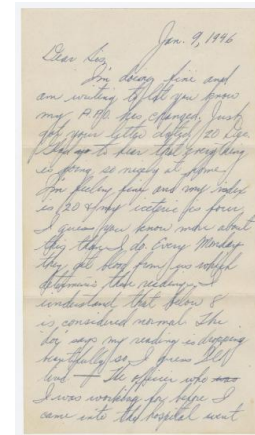 Jan. 9, 1946
Dear Sis,
I'm doing fine and
am writing to let you know
my A.P.O. has changed. Just
got your letter dated 20 Dec.
Glad to hear that everything
is going so nicely at home.
I'm feeling fine and my index
is 20 & my icteric is four.
I guess you know more about
this than I do. Every Monday
they get blood from us which
determines these readings. I
understand that below 8
is considered normal. The
boy says my reading is dropping
beautifully so I guess I'll
live — The officer who
I was working for before I
came into the hospital went